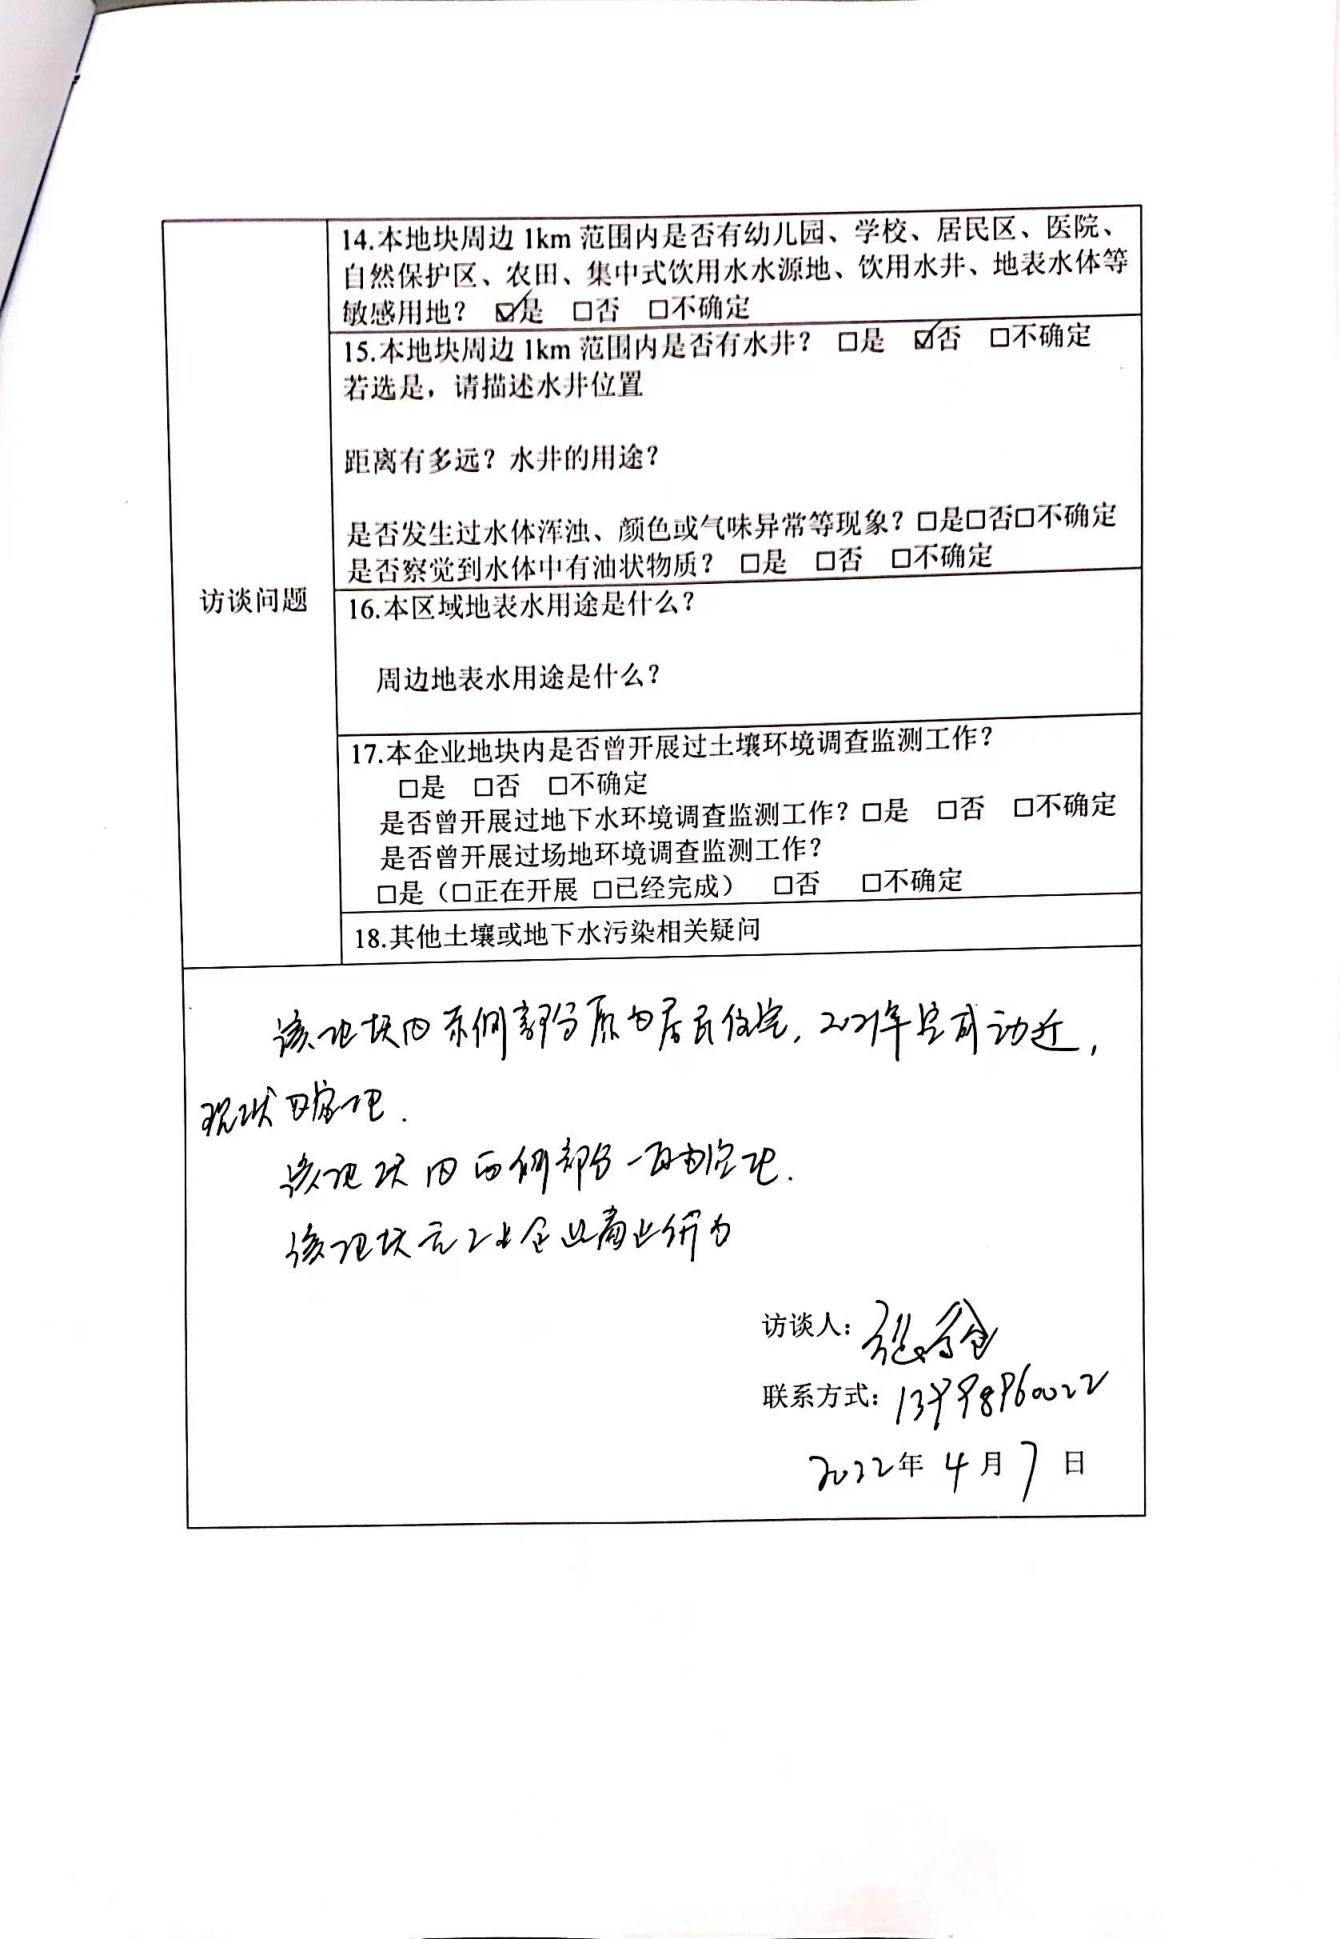 14.本地块周边 1km 范围内是否有幼儿园、学校、居民区、医院、
自然保护区、农田、集中式饮用水水源地、饮用水井、地表水体等
敏感用地? ☑是 □否 □不确定
15.本地块周边 1km 范围内是否有水井? □是 ☑否 □不确定
若选是，请描述水井位置
距离有多远？水井的用途？
是否发生过水体浑浊、颜色或气味异常等现象？□是□否□不确定
是否察觉到水体中有油状物质？ □是 □否 □不确定
访谈问题
16.本区域地表水用途是什么？
周边地表水用途是什么？
17.本企业地块内是否曾开展过土壤环境调查监测工作？
□是 □否 □不确定
是否曾开展过地下水环境调查监测工作？□是 □否 □不确定
是否曾开展过场地环境调查监测工作？
□是（□正在开展 □已经完成） □否 □不确定
18.其他土壤或地下水污染相关疑问
该地块内东侧部分原为居民住宅，2021年完成动迁，
现状为空地.
该地块内西侧部分一直为空地.
该地块无工业企业商业行为
访谈人：
联系方式：13998960022
2022年 4月 7日